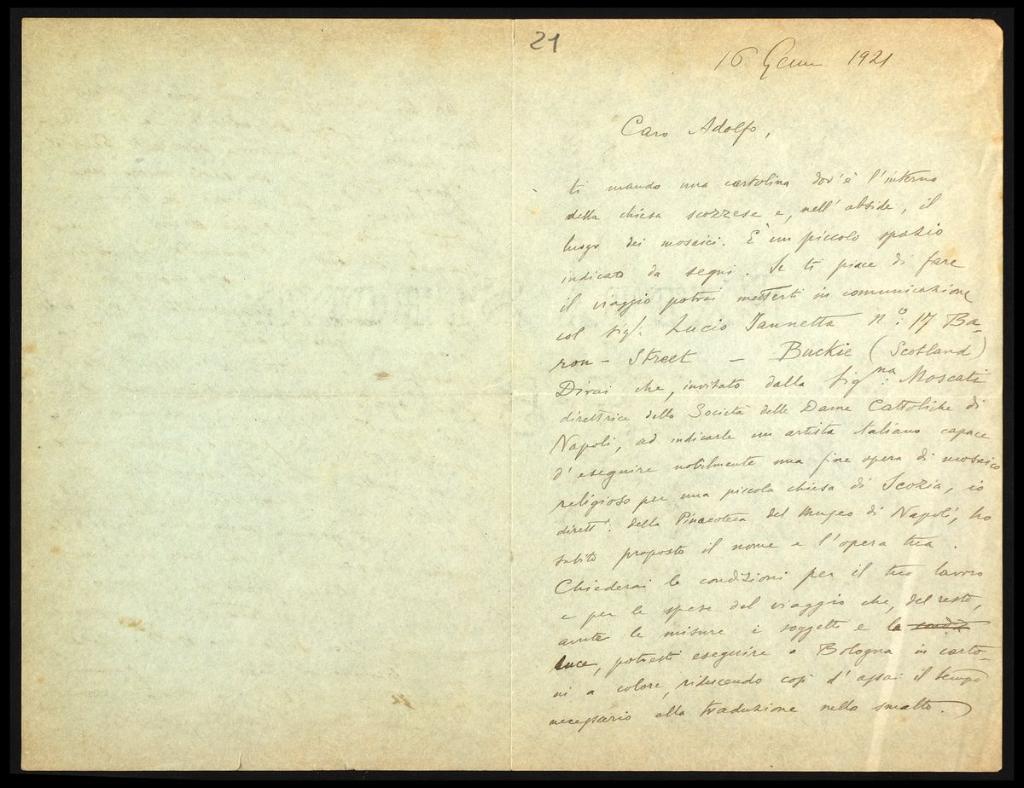 21
16 Genn 1921
Caro Adolfo,
ti mando una cartolina dov'è l'interno
della chiesa scozzese e, nell'abside, il
luogo dei mosaici. È un piccolo spazio
indicato da segni. Se ti piace di fare
il viaggio potrai metterti in comunicazione
col sig. Lucio Iannetta N.º 17 Ba-
ron - Street - Buckie (Scotland)
Dirai che, invitato dalla sigⁿᵃ. Moscati
direttrice della Società delle Dame Cattoliche di
Napoli, ad indicarle un artista italiano capace
d'eseguire nobilmente una fine opera di mosaico
religioso per una piccola chiesa di Scozia, io
dirett. della Pinacoteca del Museo di Napoli, ho
subito proposto il nome e l'opera tua.
Chiederai le condizioni per il tuo lavoro
e per le spese del viaggio che, del resto,
avute le misure i soggetti e la
luce, potresti eseguire a Bologna in carto-
ni a colore, riducendo così d'assai il tempo
necessario alla traduzione nello smalto.